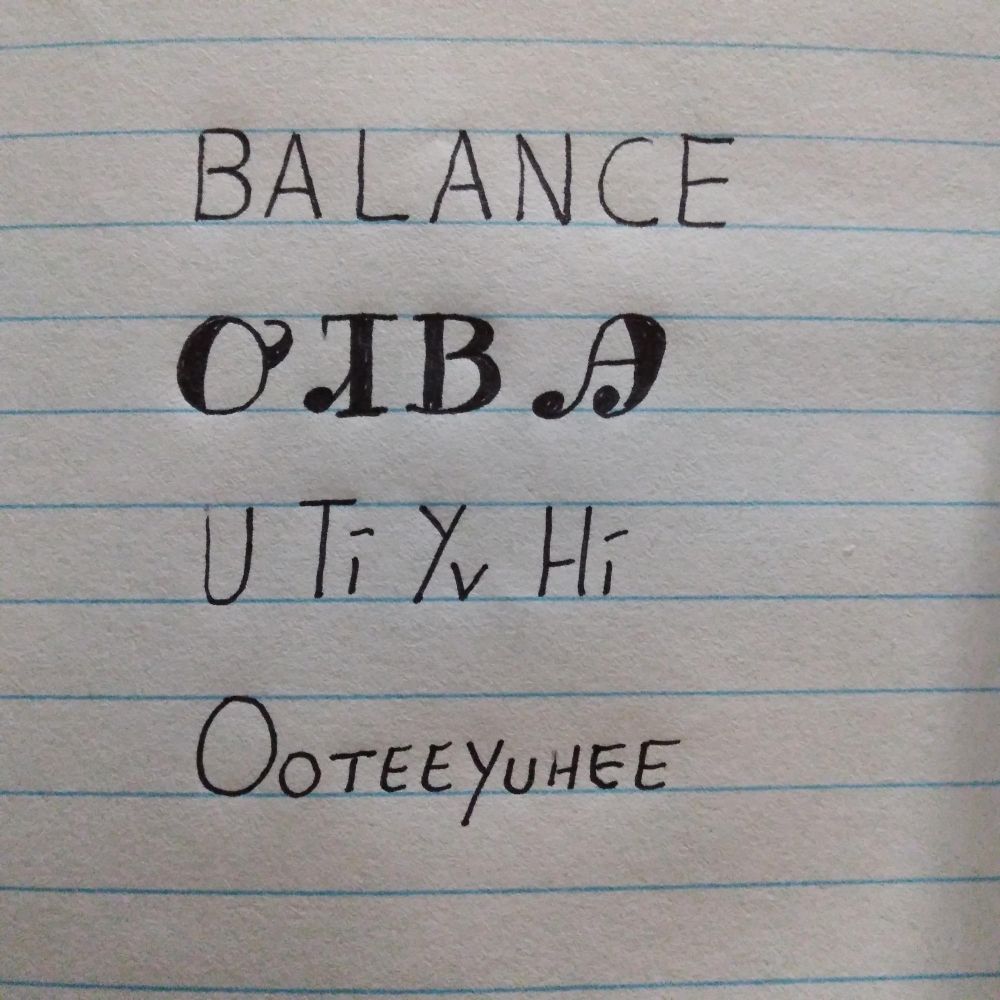 BALANCE
ᎤᏗᏴᎯ
U Ti Yv Hi
OOTEEYUHEE